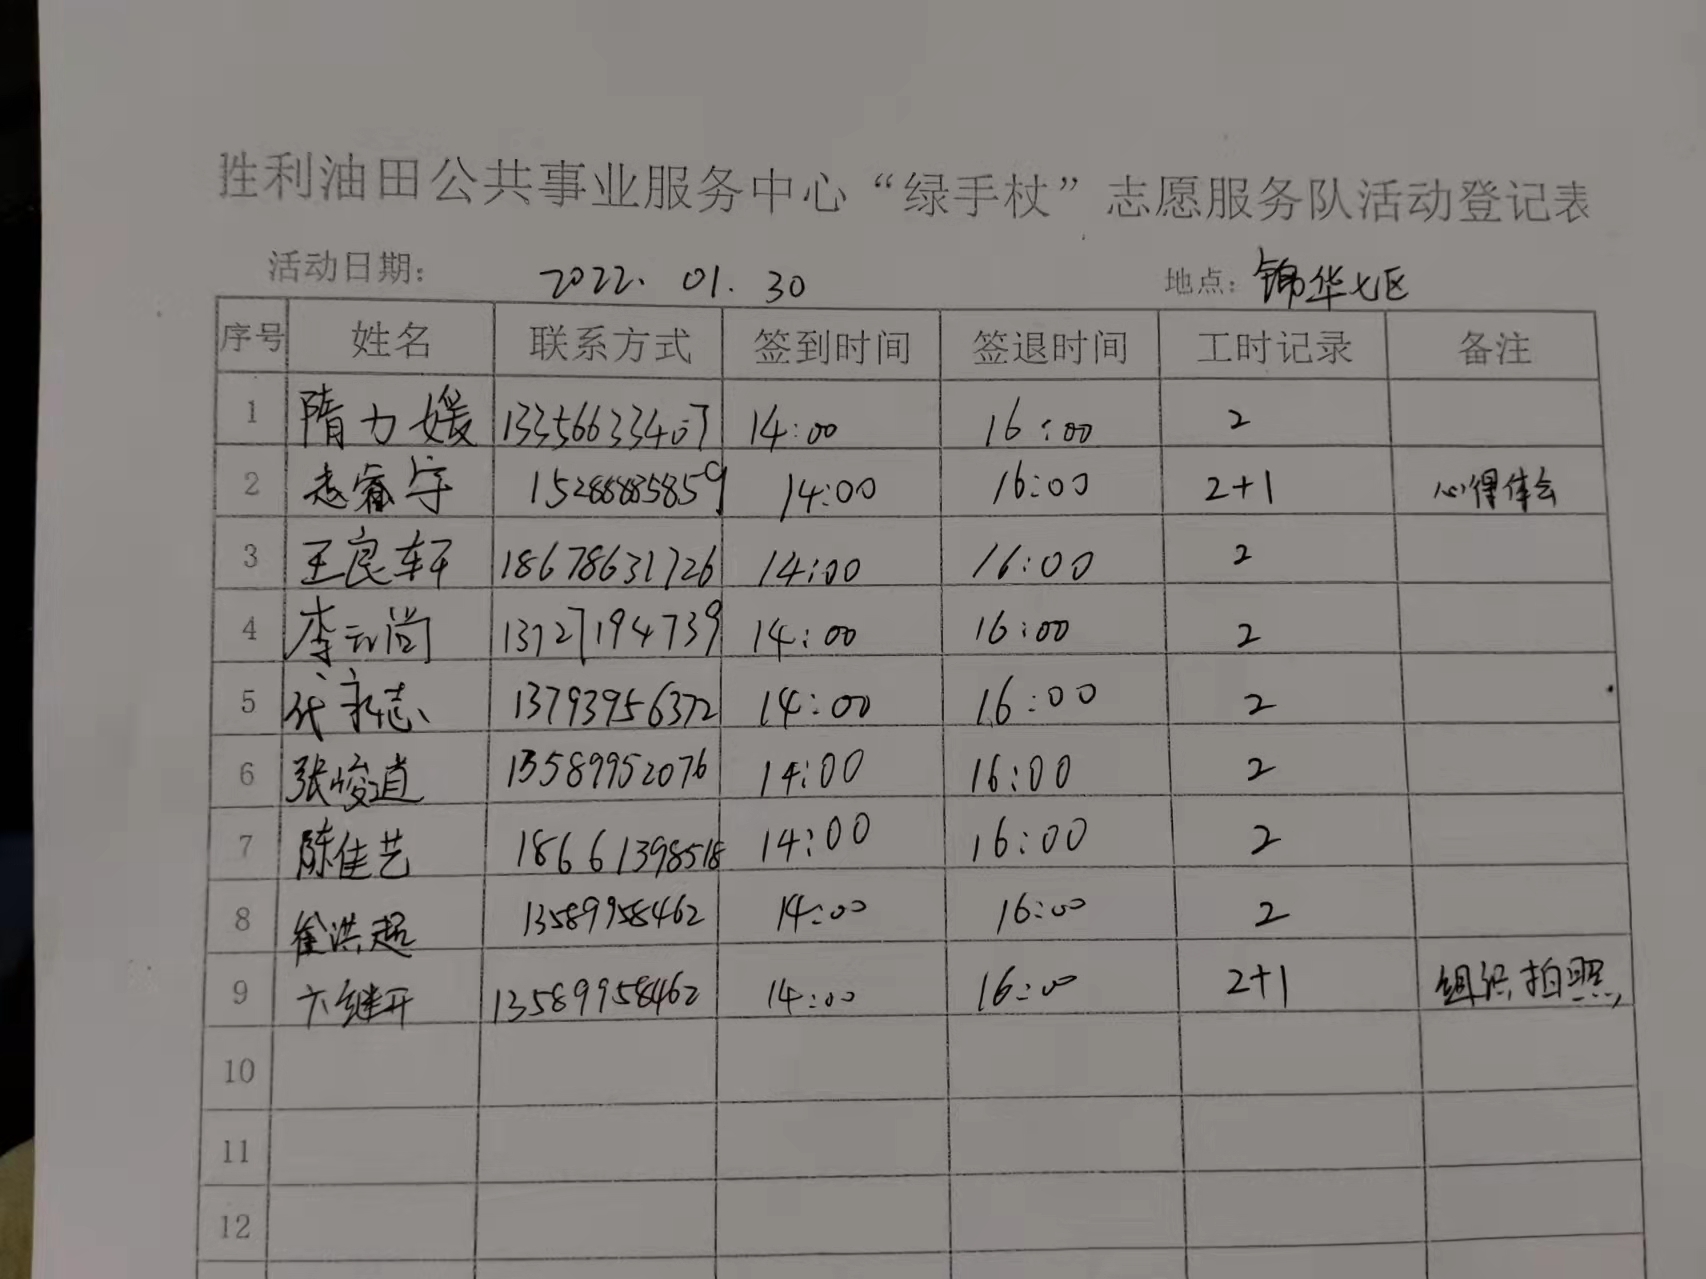 胜利油田公共事业服务中心“绿手杖”志愿服务队活动登记表
活动日期： 2022.01.30 地点：锦华七区
序号 姓名 联系方式 签到时间 签退时间 工时记录 备注
1 隋力媛 13356633407 14:00 16:00 2
2 赵睿宇 15288885859 14:00 16:00 2+1 心得体会
3 王良轩 18678631726 14:00 16:00 2
4 李云尚 13727194739 14:00 16:00 2
5 代永志 13793956372 14:00 16:00 2
6 张峻道 13589952076 14:00 16:00 2
7 陈佳艺 18661398518 14:00 16:00 2
8 徐洪超 13589958462 14:00 16:00 2
9 继开 13589958462 14:00 16:00 2+1 组织拍照
10
11
12